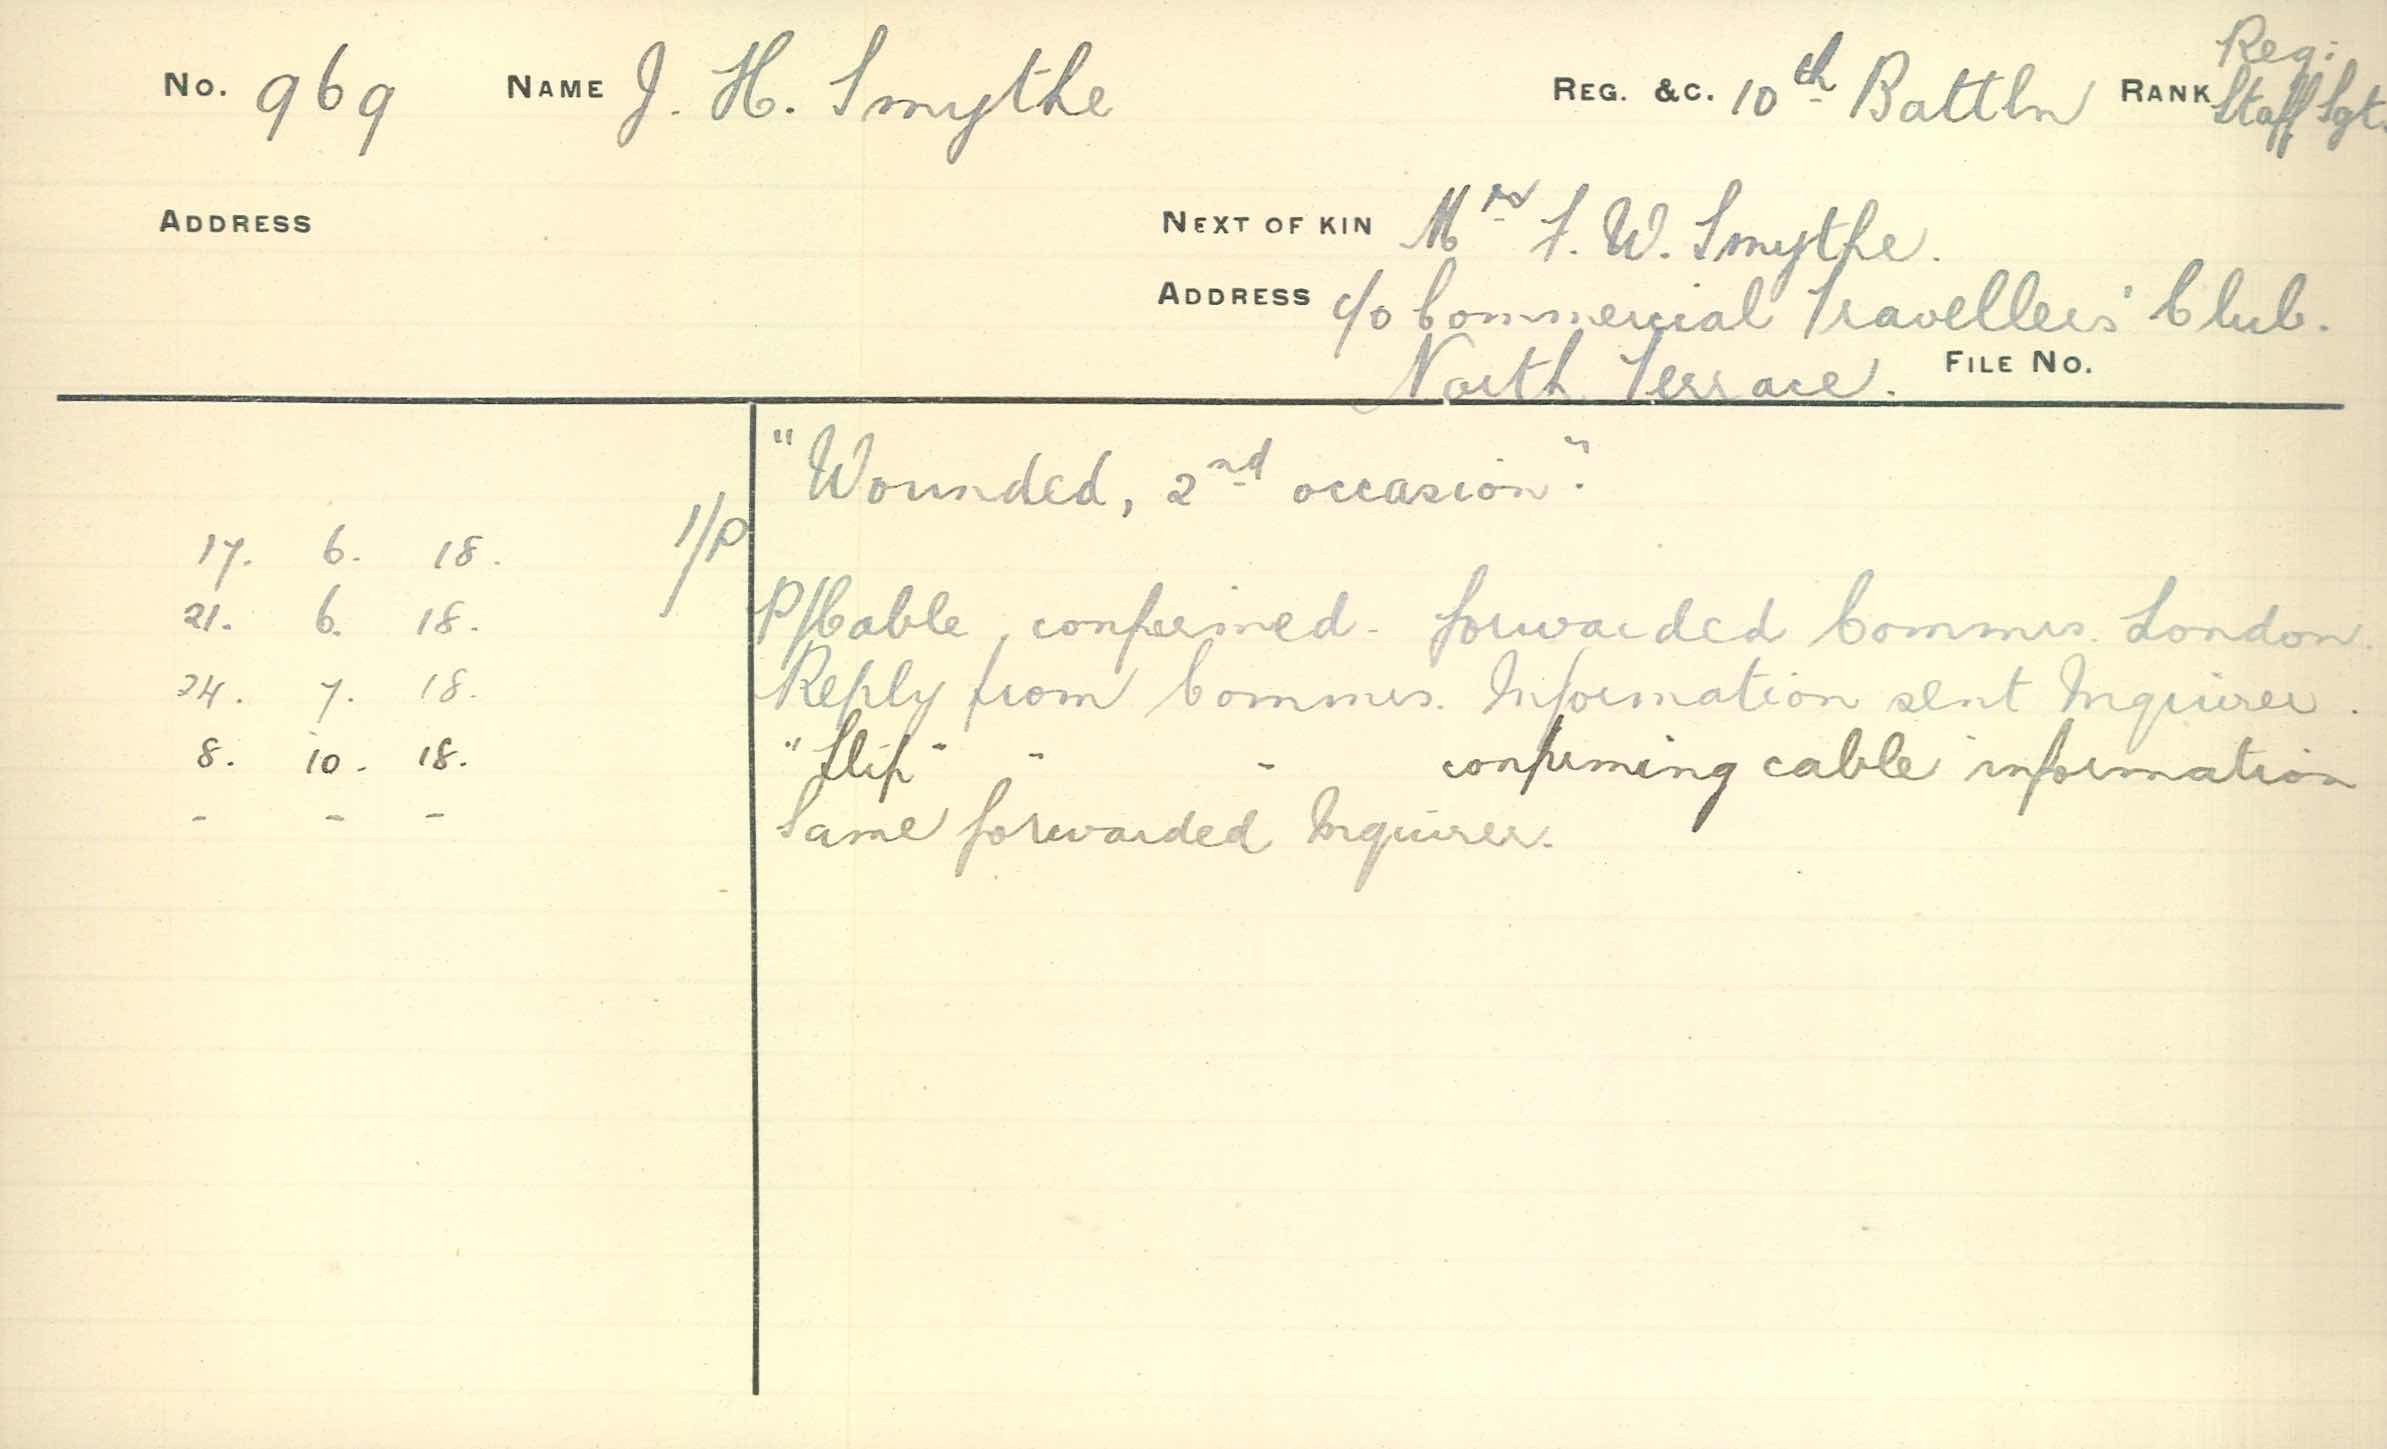 No. 969 NAME J. H. Smythe REG. &C. 10th Battln RANK Reg: Staff Sgt.
ADDRESS NEXT OF KIN Mrs F. W. Smythe.
ADDRESS c/o Commercial Travellers' Club.
North Terrace. FILE No.
"Wounded, 2nd occasion".
17. 6. 18. 1/P
21. 6. 18. P/Cable, confirmed. forwarded Commrs. London.
24. 7. 18. Reply from Commrs. Information sent Inquirer.
8. 10. 18. "Slip" " " confirming cable information
" " " Same forwarded Inquirer.